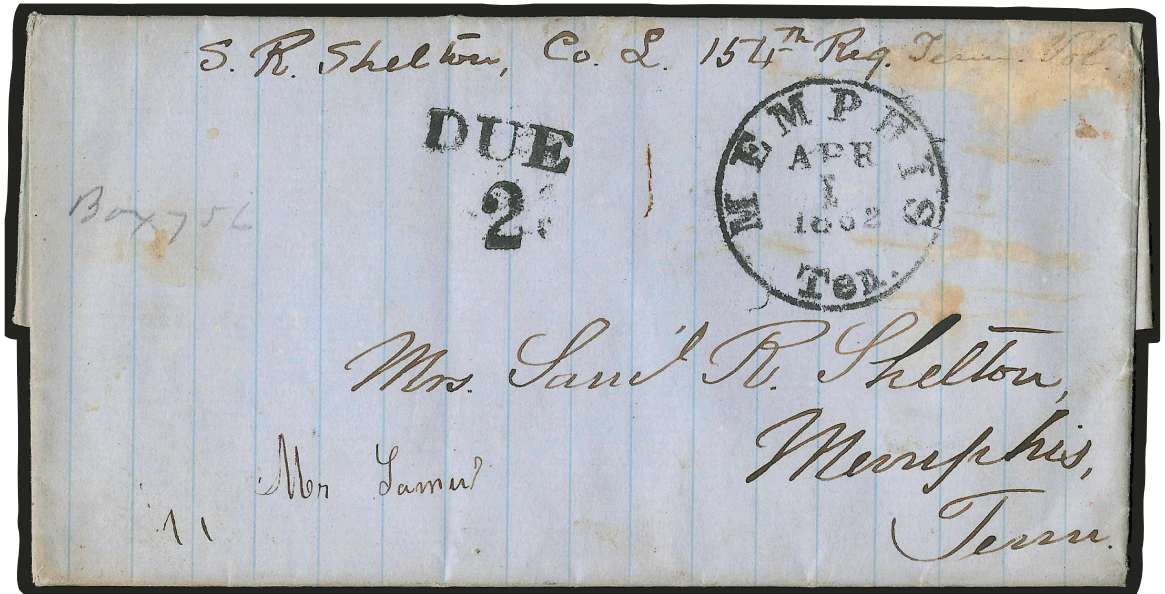 S. R. Shelton, Co. L. 154th Reg. Tenn. Vol.
DUE
2
MEMPHIS
APR
1
1862
Ten.
Box 756
Mrs. Sam'l R. Shelton,
Memphis,
Tenn.
Mr Samul